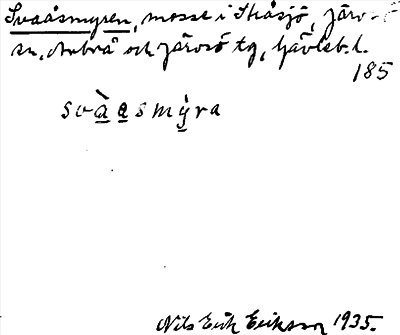 Svaåsmyren, mosse i Skåsjö, Järvsö
sn, Arbrå och Järvsö tg, Gävleb. l.
185
svàasmy̍ra
Nils Erik Eriksson 1935.